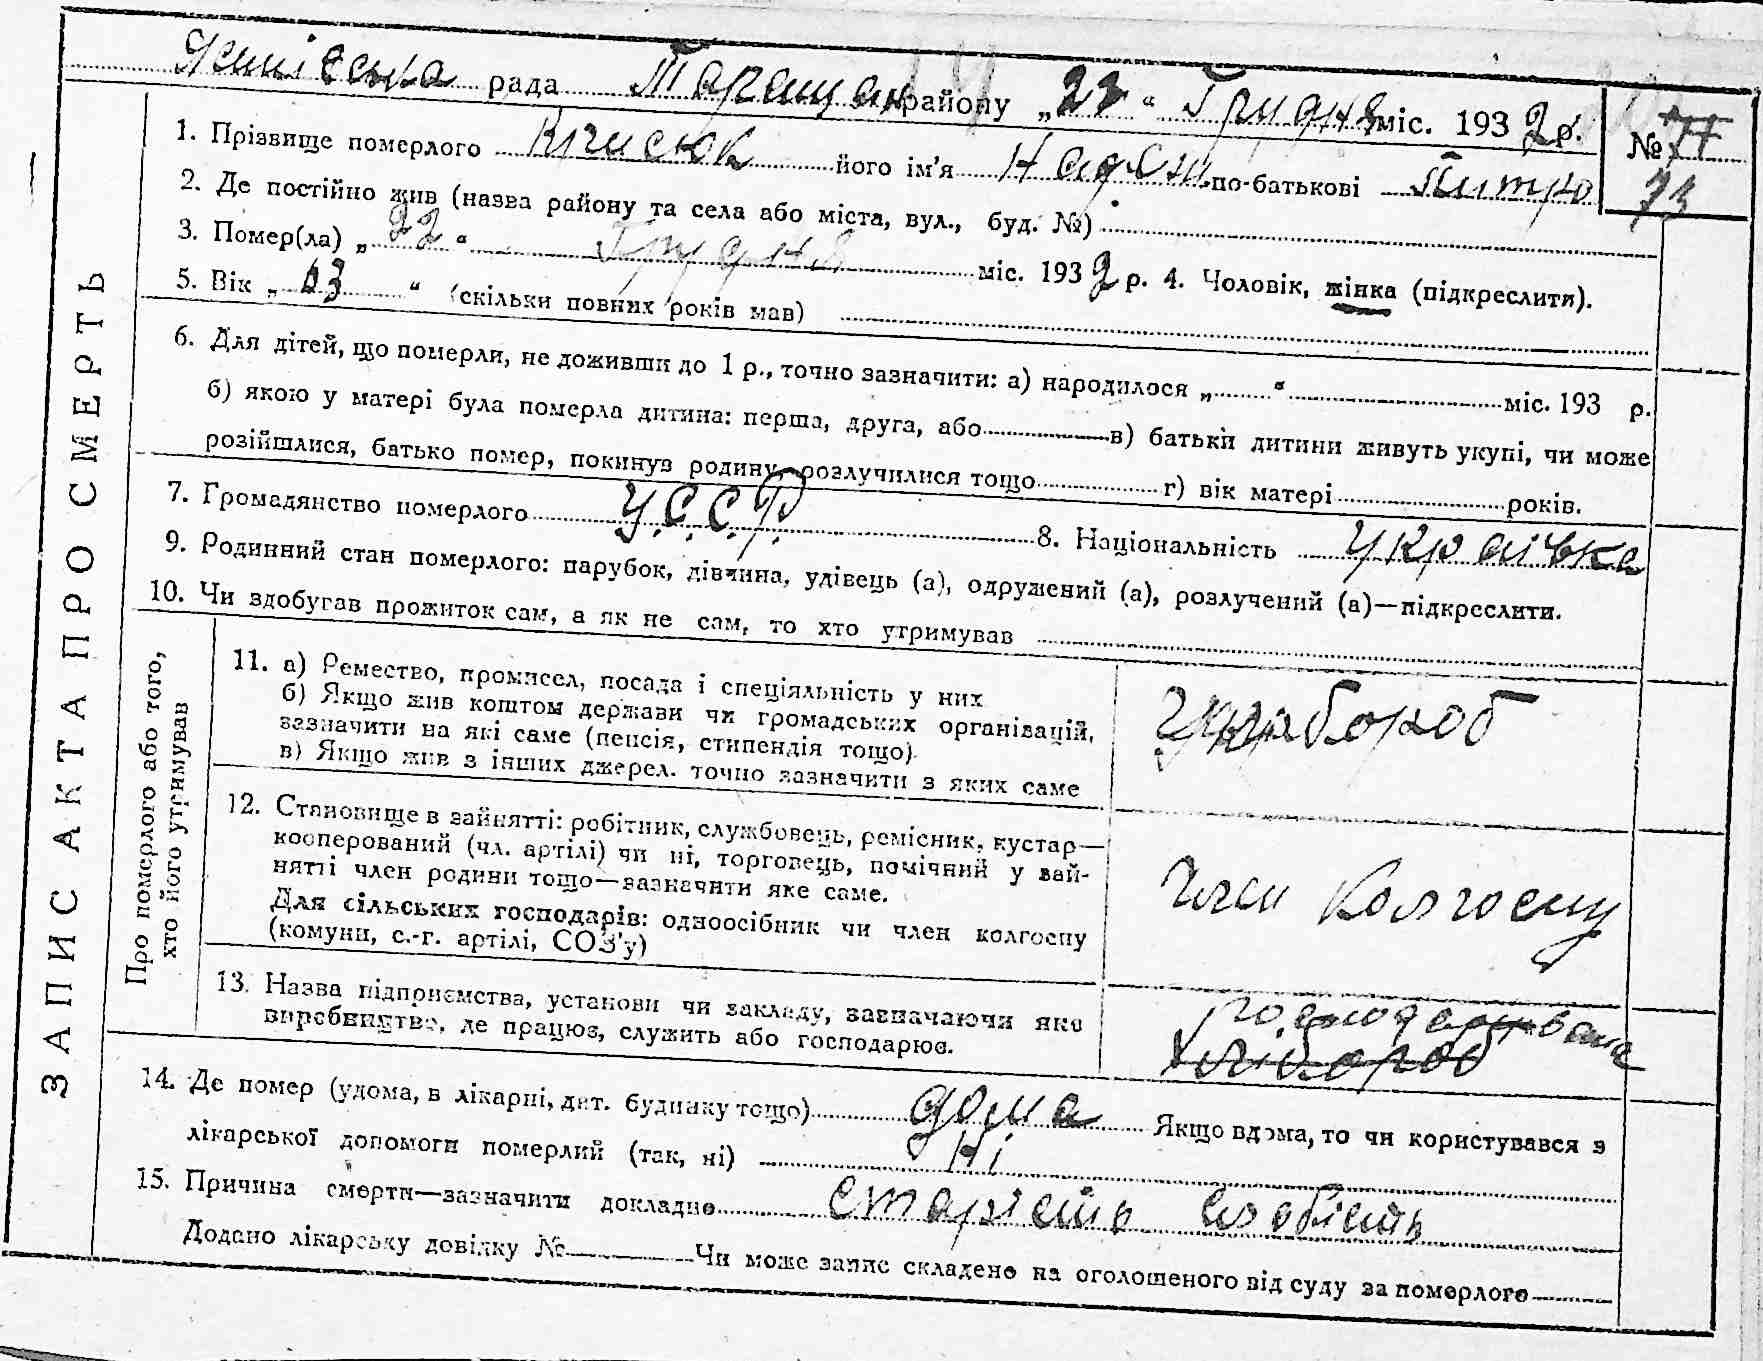 рада Таращан району „23“ Грудня міс. 1932 р.
№ 77
73
1. Прізвище померлого його ім'я Надежи по-батькові
2. Де постійно жив (назва району та села або міста, вул., буд. №)
3. Помер(ла) „22“ Грудня міс. 1932 р. 4. Чоловік, жінка (підкреслити).
5. Вік „63“ (скільки повних років мав)
6. Для дітей, що померли, не доживши до 1 р., точно зазначити: а) народилося „ “ міс. 193 р.
б) якою у матері була померла дитина: перша, друга, або в) батьки дитини живуть укупі, чи може
розійшлися, батько помер, покинув родину, розлучилися тощо г) вік матері років.
7. Громадянство померлого У.С.С.Р. 8. Національність Українка
9. Родинний стан померлого: парубок, дівчина, удівець (а), одружений (а), розлучений (а)—підкреслити.
10. Чи здобував прожиток сам, а як не сам, то хто утримував
ЗАПИС АКТА ПРО СМЕРТЬ
Про померлого або того,
хто його утримував
11. а) Ремество, промисел, посада і спеціяльність у них
б) Якщо жив коштом держави чи громадських організацій,
зазначити на які саме (пенсія, стипендія тощо).
в) Якщо жив з інших джерел. точно зазначити з яких саме
12. Становище в зайнятті: робітник, службовець, ремісник, кустар—
кооперований (чл. артілі) чи ні, торговець, помічний у зай-
нятті член родини тощо—зазначити яке саме.
Для сільських господарів: одноосібник чи член колгоспу
(комуни, с.-г. артілі, СОЗ'у)
Член Колгоспу
13. Назва підприємства, установи чи закладу, зазначаючи яке
виробництво, де працює, служить або господарює.
14. Де помер (удома, в лікарні, дит. будинку тощо) дома Якщо вдома, то чи користувався з
лікарської допомоги померлий (так, ні) Ні
15. Причина смерти—зазначити докладно старість слабість
Додано лікарську довідку № Чи може запис складено на оголошеного від суду за померлого